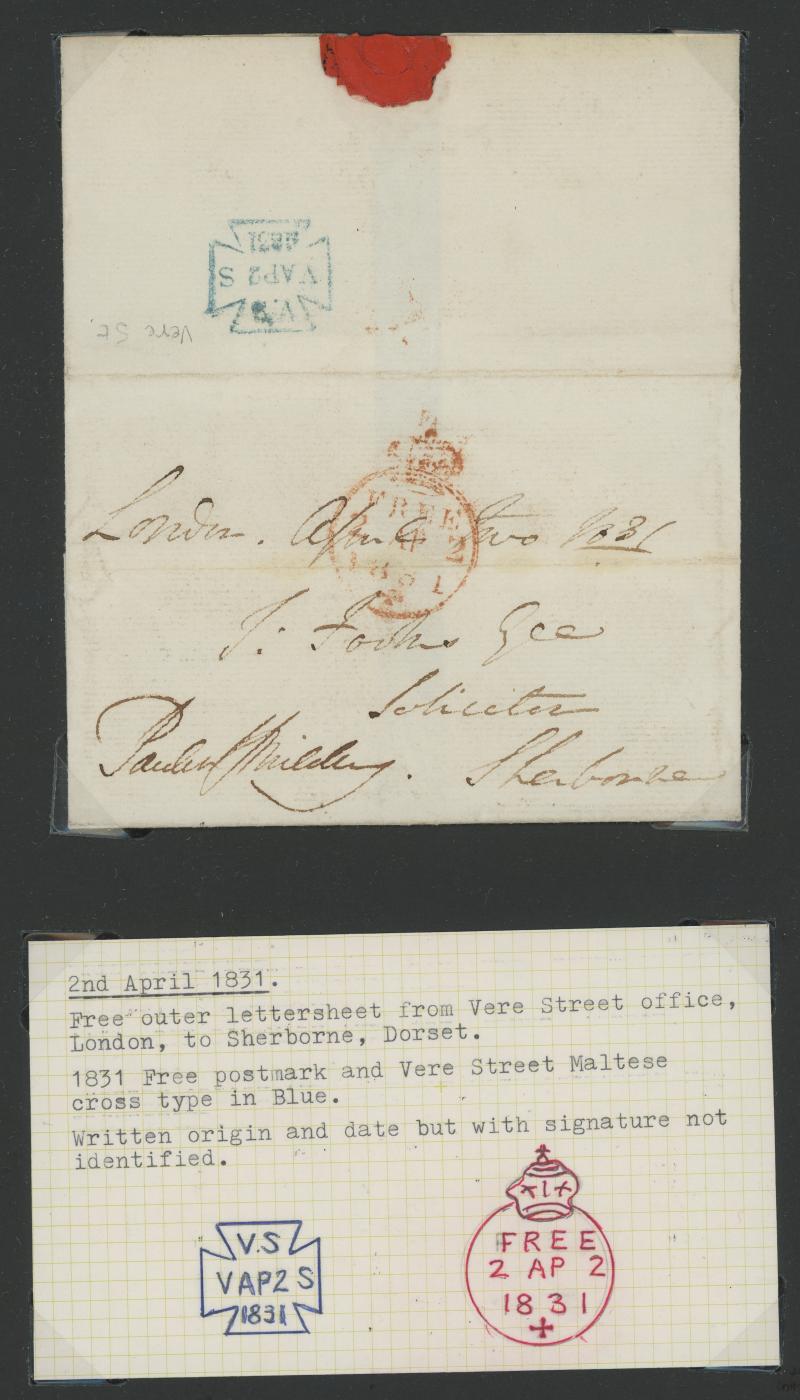 1831
V AP2 S
V.S
Vere St.
FREE
2 AP 2
1831
London. April Two 1831
T: Fooks Esqe
Solicitor
Sherborne
2nd April 1831.
Free outer lettersheet from Vere Street office,
London, to Sherborne, Dorset.
1831 Free postmark and Vere Street Maltese
cross type in Blue.
Written origin and date but with signature not
identified.
V.S
V AP2 S
1831
FREE
2 AP 2
1831